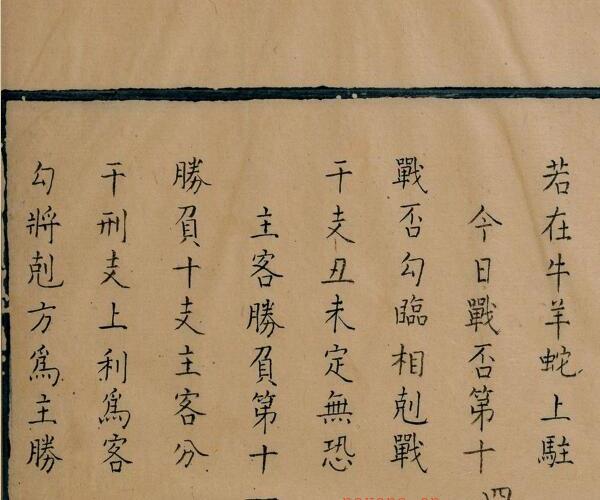 若在牛羊蛇上駐
今日戰否第十四
戰否勾臨相剋戰
干支丑未定無恐
主客勝負第十
勝負十支主客分
干刑支上利爲客
勾將剋方爲主勝